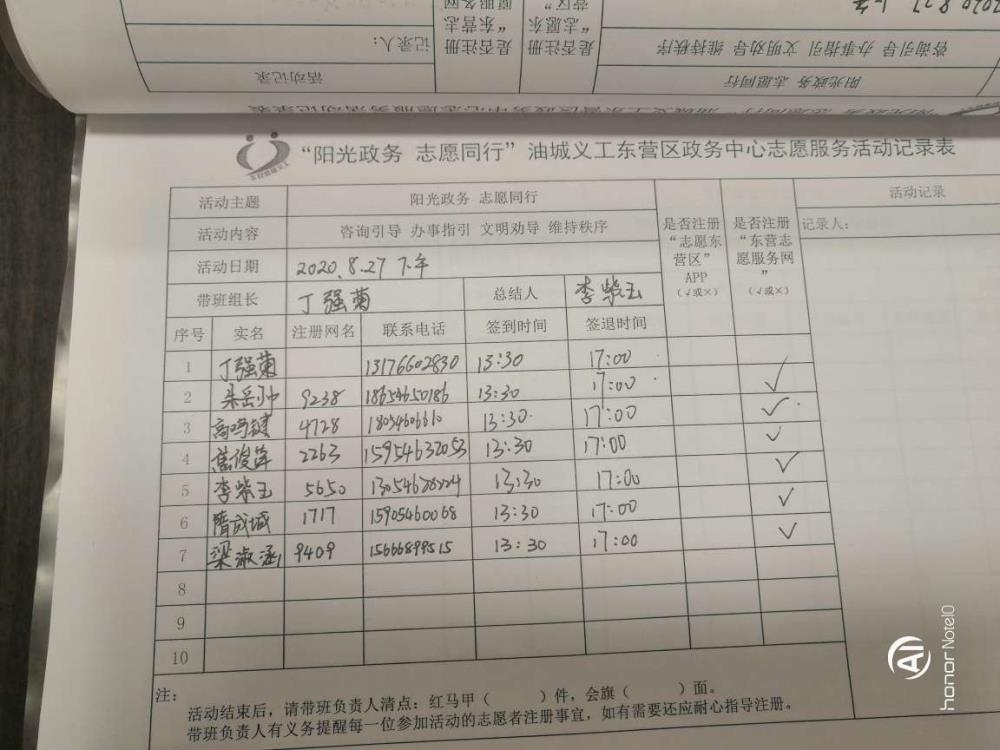 活动记录
阳光政务 志愿同行
记录人：
咨询引导 办事指引 文明劝导 维持秩序
是否注册“东营志愿服务网
是否注册“志愿东营区”
2020.8.27
“阳光政务 志愿同行”油城义工东营区政务中心志愿服务活动记录表
活动主题 阳光政务 志愿同行
活动内容 咨询引导 办事指引 文明劝导 维持秩序
活动日期 2020.8.27 下午
带班组长 丁强菊 总结人 李紫玉
是否注册“志愿东营区”APP（√或×）
是否注册“东营志愿服务网”（√或×）
活动记录
记录人：
序号 实名 注册网名 联系电话 签到时间 签退时间
1 丁强菊 13176602830 13:30 17:00
2 朱岳帅 9238 18654650186 13:30 17:00 √
3 高鸣键 4728 18054606610 13:30 17:00 √
4 焦俊萍 2263 15954632053 13:30 17:00 √
5 李紫玉 5650 13:30 17:00 √
6 隋成城 1717 15905460068 13:30 17:00 √
7 梁淑涵 9409 15666899515 13:30 17:00 √
8
9
10
注：
活动结束后，请带班负责人清点：红马甲（ ）件，会旗（ ）面。
带班负责人有义务提醒每一位参加活动的志愿者注册事宜，如有需要还应耐心指导注册。
honor Note10